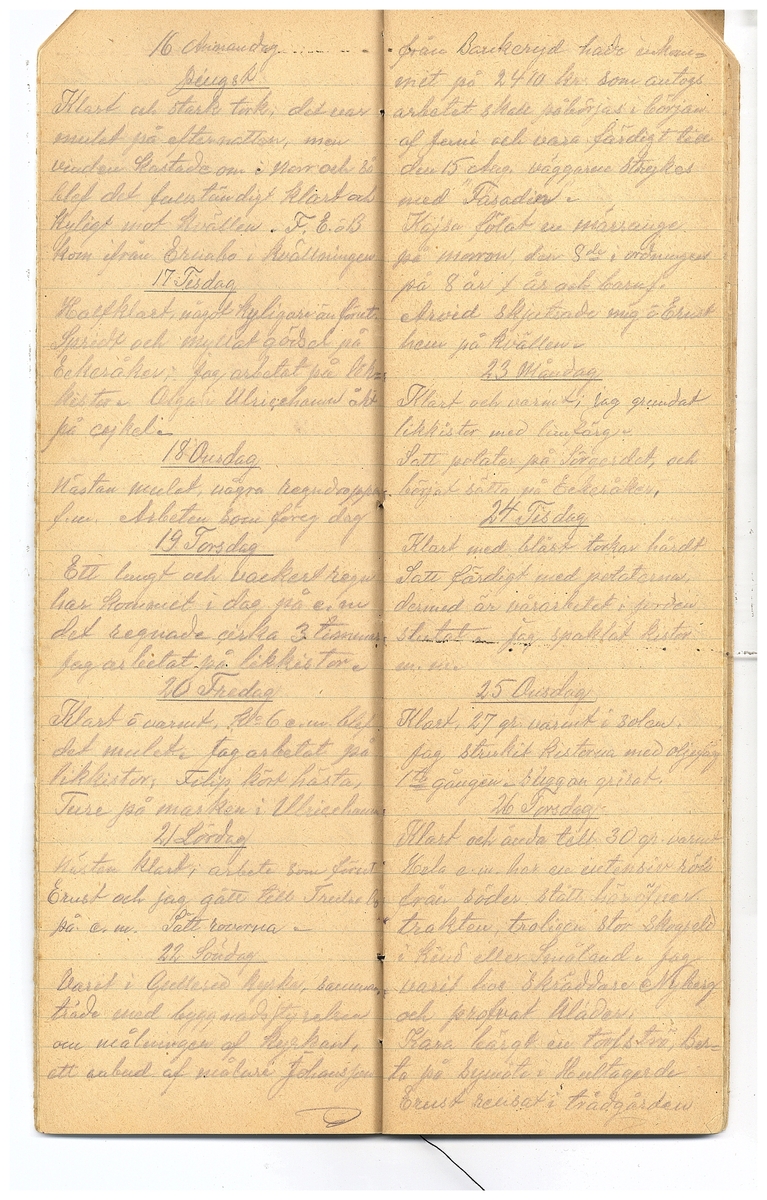 16 Annandag
Pingst
Klart och stark tork, det var
mulet på efternatten, men
vinden kastade om i norr och så
blef det fullständigt klart och
kyligt mot kvällen. F. E. o B
kom ifrån Ernabo i kvällningen
17 Tisdag
Halfklart, något kyligare än förut.
Spridt och myllat gödsel på
Eekesåker; Jag arbetat på lik=
kistor. Olga i Ulricehamn åkt
på cykel.
18 Onsdag
Nästan mulet, några regndroppar
f.m. Arbeten som föreg dag
19 Torsdag
Ett lungt och vackert regn
har kommet i dag på e.m
det regnade cirka 3 timmar
Jag arbetat på likkistor.
20 Fredag
Klart o varmt, Kl. 6 e.m. blef
det mulet. Jag arbetat på
likkistor, Filip kört hästa,
Ture på marken i Ulricehamn
21 Lördag
Nästen klart, arbete som förut
Ernst och jag gått till
på e.m. Satt roverna
22 Söndag
Varit i Gullered kyrka, samman=
träde med byggnadsstyrelsen
om målningen af kyrkan,
ett anbud af målare Johansson
från Bankeryd hade inkom=
met på 2410 kr. som antogs
arbetet skall påbörjas i början
af Juni och vara färdigt till
den 15 Aug. väggarne strykes
med "Fasadin"
Kajsa fölat en märrunge
på morron den 8de i ordningen
på 8 år
Arvid skjutsade mig o Ernst
hem på kvällen.
23 Måndag
Klart och varmt, jag grundat
likkistor med limfärg.
Satt potater på Sörgerdet, och
börjat sätta på Eekesåker.
24 Tisdag
Klart med blåst torkar hårdt
Satt färdigt med potaterna,
dermed är vårarbetet i jorden
slutat jag spaklat kistor
m. m.
25 Onsdag
Klart, 27 gr. varmt i solen.
Jag strukit kistorna med oljefärg
1sta gången. Suggan grisat.
26 Torsdag
Klart och ända till 30 gr. varmt
Hela e.m. har en intensiv röd
från söder stått här öfver
trakten, troligen stor skogseld
i Kind eller Småland. Jag
varit hos skräddare Nyberg
och profvat kläder.
Kara bärgt in torfströ, Ber=
ta på symöte i Hultagerde
Ernst rensat i trädgården